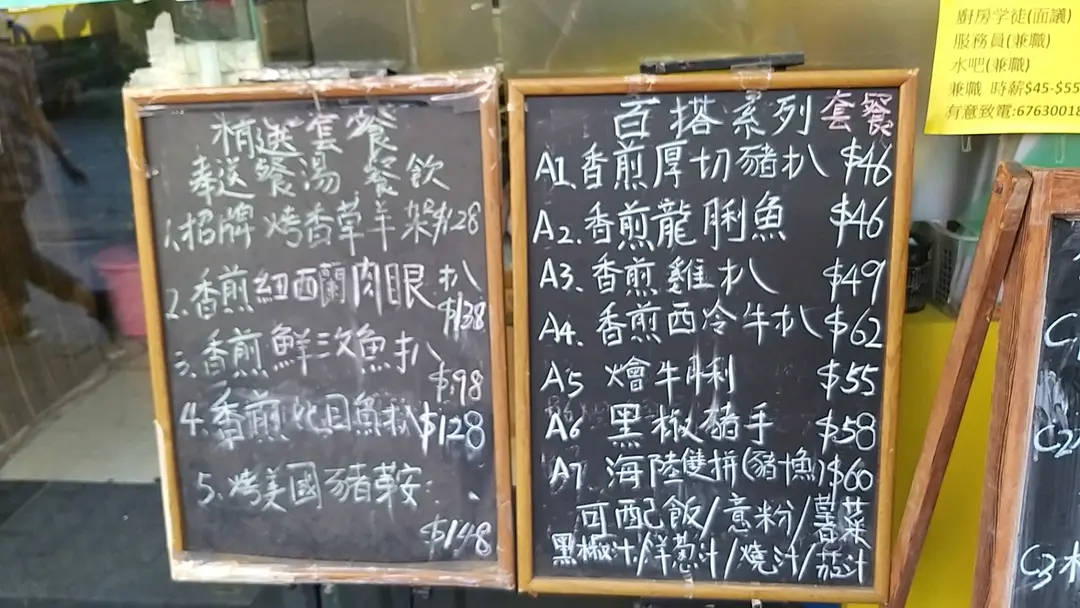 精選套餐
奉送餐湯餐飲
1.招牌烤香草羊架$128
2.香煎紐西蘭肉眼扒
$138
3.香煎鮮汶魚扒
$98
4.香煎比目魚扒$128
5.烤美國豬鞍
$148
百搭系列套餐
A1.香煎厚切豬扒 $46
A2.香煎龍脷魚 $46
A3.香煎雞扒 $49
A4.香煎西冷牛扒 $62
A5 燴牛脷 $55
A6 黑椒豬手 $58
A7 海陸雙拼(豬魚)$60
可配飯/意粉/薯菜
黑椒汁/洋葱汁/燒汁/茄汁
廚房学徒(面議)
服務員(兼職)
水吧(兼職)
兼職 時薪$45-$55
有意致電:6763001
C2
C3